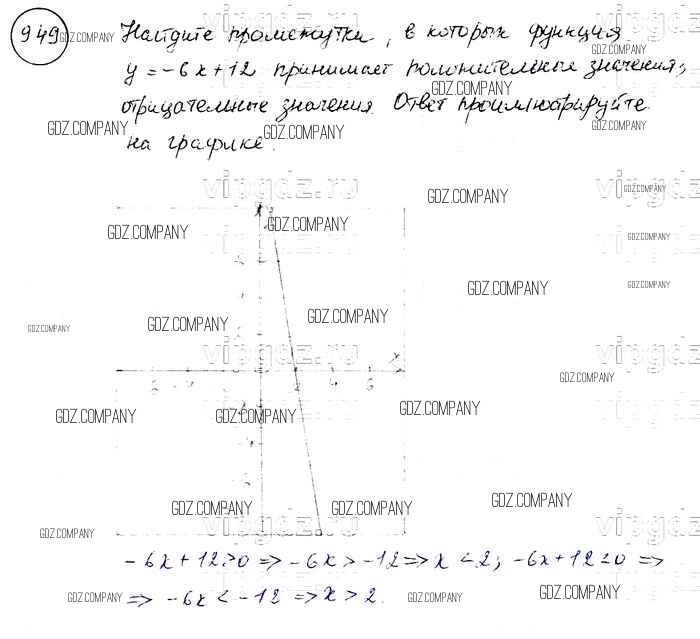 949 Найдите промежутки, в которых функция
y = -6x+12 принимает положительные значения;
отрицательные значения. Ответ проиллюстрируйте
на графике.
vipgdz.ru
GDZ.COMPANY
x
-6x+12>0 => -6x > -12 => x < 2; -6x+12<0 =>
=> -6x < -12 => x > 2.